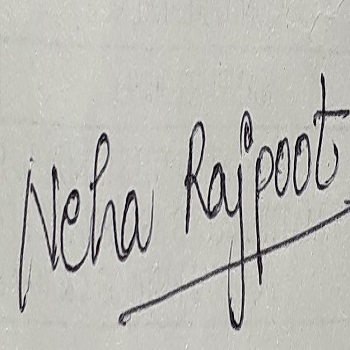 Neha Rajpoot